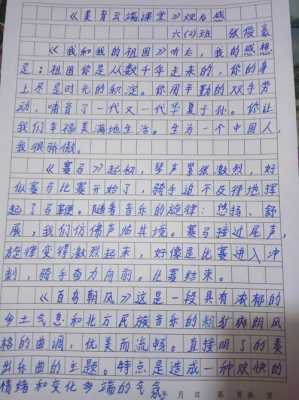 《美育云端课堂》观后感
六(4)班 张俊豪
《我和我的祖国》听后，我的感想
是：祖国你是从数千年走来的，你的身
上尽是时光的积淀。你用辛勤的双手劳
动，哺育了一代又一代华夏子孙。你让
我们幸福美满地生活。生为一个中国人，
我很骄傲。
《赛马》起初，琴声紧张激烈，好
似赛马比赛开始了，骑手迫不及待地挥
起了马鞭。随着音乐的旋律：悠扬、舒
展，我们仿佛身临其境。赛马接近尾声，
旋律变得激烈起来，好像是比赛进入冲
刺，骑手奋力向前。比赛结束。
《百鸟朝凤》这是一段具有浓郁的
乡土气息和北方民族音乐的粗犷爽朗风
格的曲调，优美而流畅。直接明了的奏
出乐曲的主题。特点是造成一种欢快的
情绪和变化多端的气氛
年 月 日 第 页